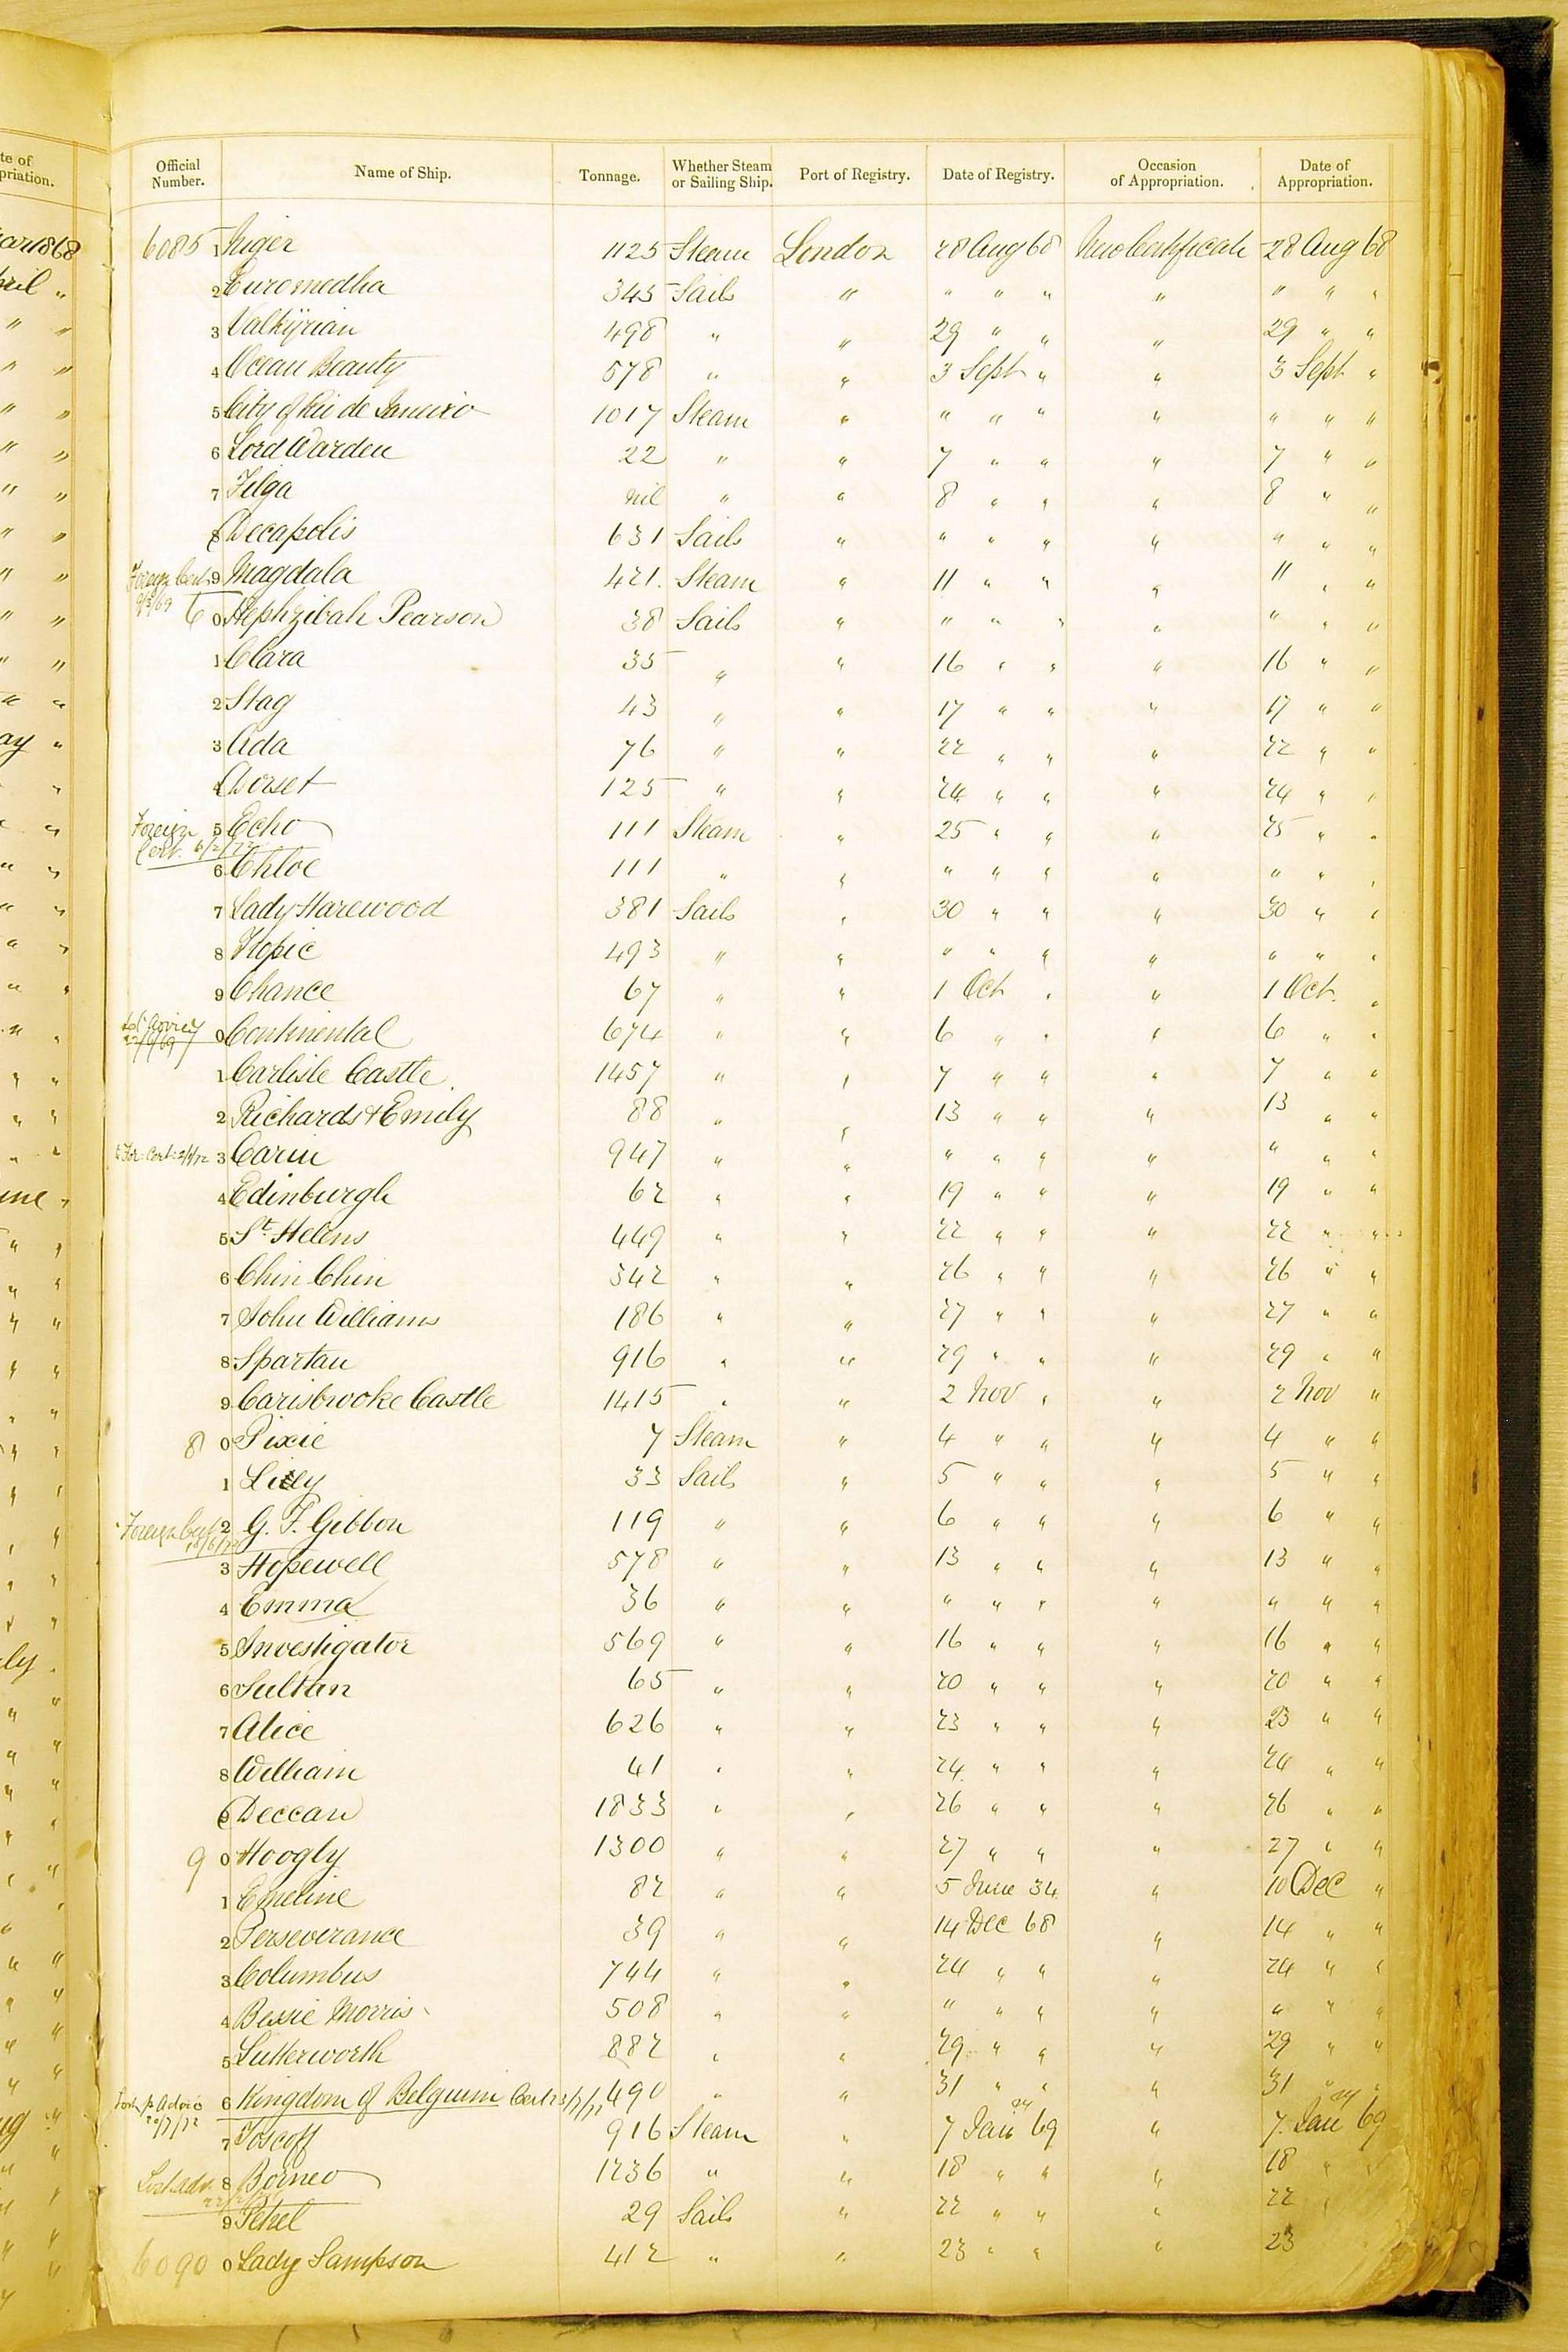 Official Number. Name of Ship. Tonnage. Whether Steam or Sailing Ship. Port of Registry. Date of Registry. Occasion of Appropriation. Date of Appropriation.
6085 1 Niger 1125 Steam London 28 Aug 68 New Certificate 28 Aug 68
2 Euromedha 345 Sails " " " " " " " "
3 Valkyrian 498 " " 29 " " " 29 " "
4 Ocean Beauty 578 " " 3 Sept " " 3 Sept "
5 City of Rio de Janeiro 1017 Steam " " " " " " " "
6 Lord Warden 22 " " 7 " " " 7 " "
7 Filga nil " " 8 " " " 8 " "
8 Decapolis 631 Sails " " " " " " " "
Foreign Cert. 9 Magdala 421 Steam " 11 " " " 11 " "
6 0 Hephzibah Pearson 38 Sails " " " " " " " "
1 Clara 35 " " 16 " " " 16 " "
2 Stag 43 " " 17 " " " 17 " "
3 Ada 76 " " 22 " " " 22 " "
4 Dorset 125 " " 24 " " " 24 " "
Foreign 5 Echo 111 Steam " 25 " " " 25 " "
Cert. 6/2/72
6 Chloe 111 " " " " " " " " "
7 Lady Harewood 381 Sails " 30 " " " 30 " "
8 493 " " " " " " " " "
9 Chance 67 " " 1 Oct " " 1 Oct. "
0 Continental 674 " " 6 " " " 6 " "
1 Carlisle Castle 1457 " " 7 " " " 7 " "
2 Richards & Emily 88 " " 13 " " " 13 " "
For. Cert. 3 Carin 947 " " " " " " " " "
4 Edinburgh 62 " " 19 " " " 19 " "
5 St. Helens 449 " " 22 " " " 22 " "
6 Chin Chin 342 " " 26 " " " 26 " "
7 John Williams 186 " " 27 " " " 27 " "
8 Spartan 916 " " 29 " " " 29 " "
9 Carisbrooke Castle 1415 " " 2 Nov " " 2 Nov "
8 0 Pixie 7 Steam " 4 " " " 4 " "
1 Lilly 33 Sails " 5 " " " 5 " "
Foreign Cert 2 G. F. Gibbon 119 " " 6 " " " 6 " "
3 Hopewell 578 " " 13 " " " 13 " "
4 Emma 36 " " " " " " " " "
5 Investigator 569 " " 16 " " " 16 " "
6 Sultan 65 " " 20 " " " 20 " "
7 Alice 626 " " 23 " " " 23 " "
8 William 41 " " 24 " " " 24 " "
9 Deccan 1833 " " 26 " " " 26 " "
9 0 Hoogly 1300 " " 27 " " " 27 " "
1 Emeline 82 " " 5 June 34 " 10 Dec "
2 Perseverance 39 " " 14 Dec 68 " 14 " "
3 Columbus 744 " " 24 " " " 24 " "
4 Bessie Morris 508 " " " " " " " " "
5 Lutterworth 882 " " 29 " " " 29 " "
6 Kingdom of Belgium 490 " " 31 " " " 31 " "
7 Toscoff 916 Steam " 7 Jan 69 " 7 Jan 69
8 Borneo 1236 " " 18 " " " 18 "
9 Petrel 29 Sails " 22 " " " 22
6090 0 Lady Sampson 412 " " 23 " " " 23